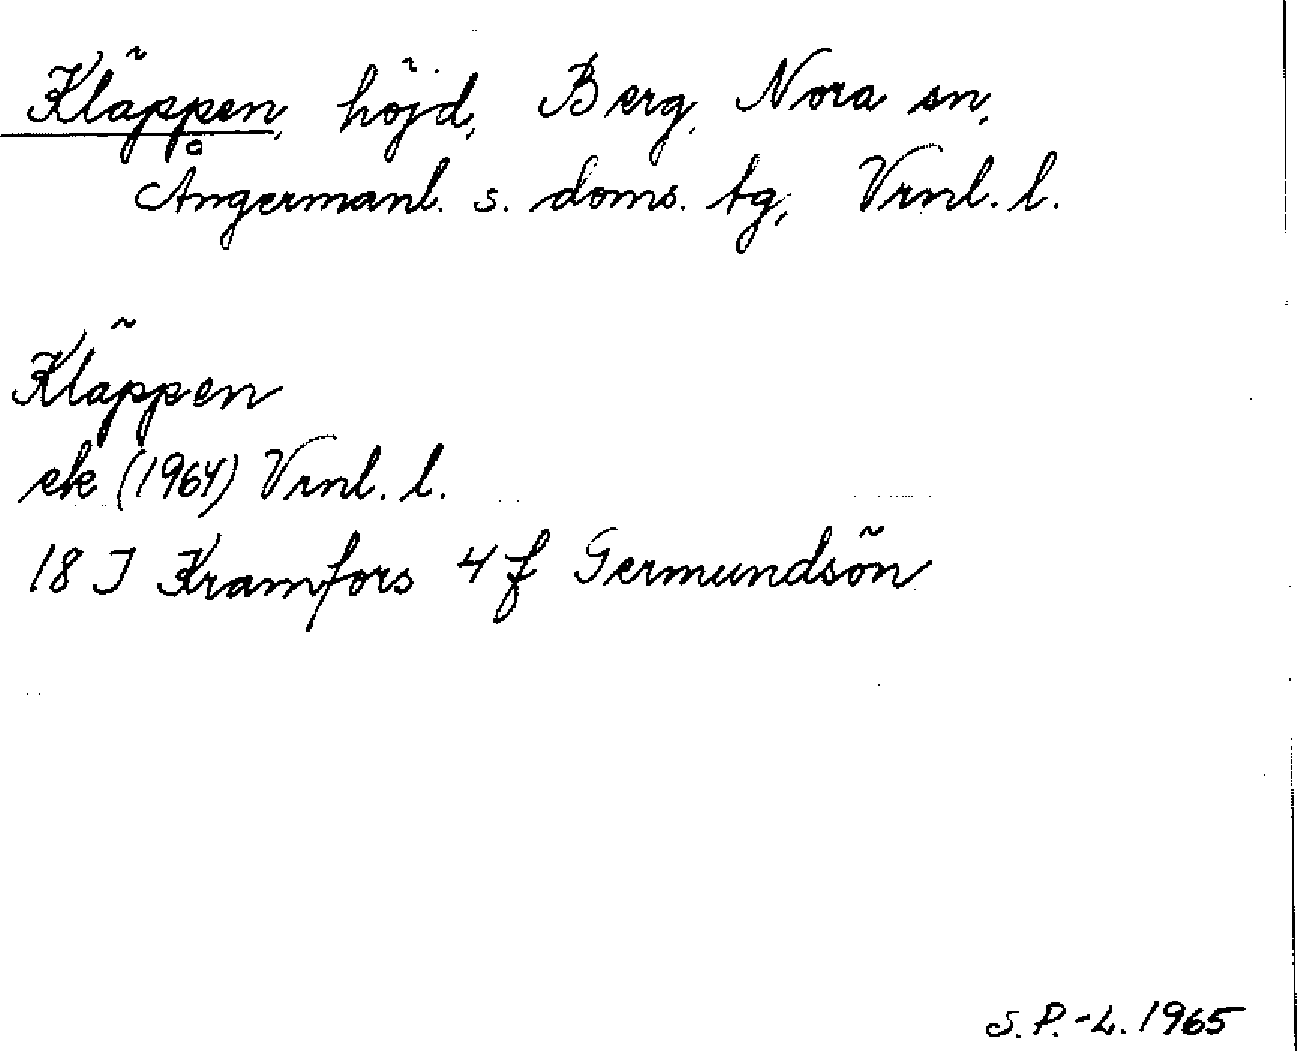 Kläppen, höjd, Berg, Nora sn,
Ångermanl. s. doms. tg, Vrnl. l.
Kläppen
ek (1964) Vrnl. l.
18 J Kramfors 4 f Germundsön
S. P.-L. 1965